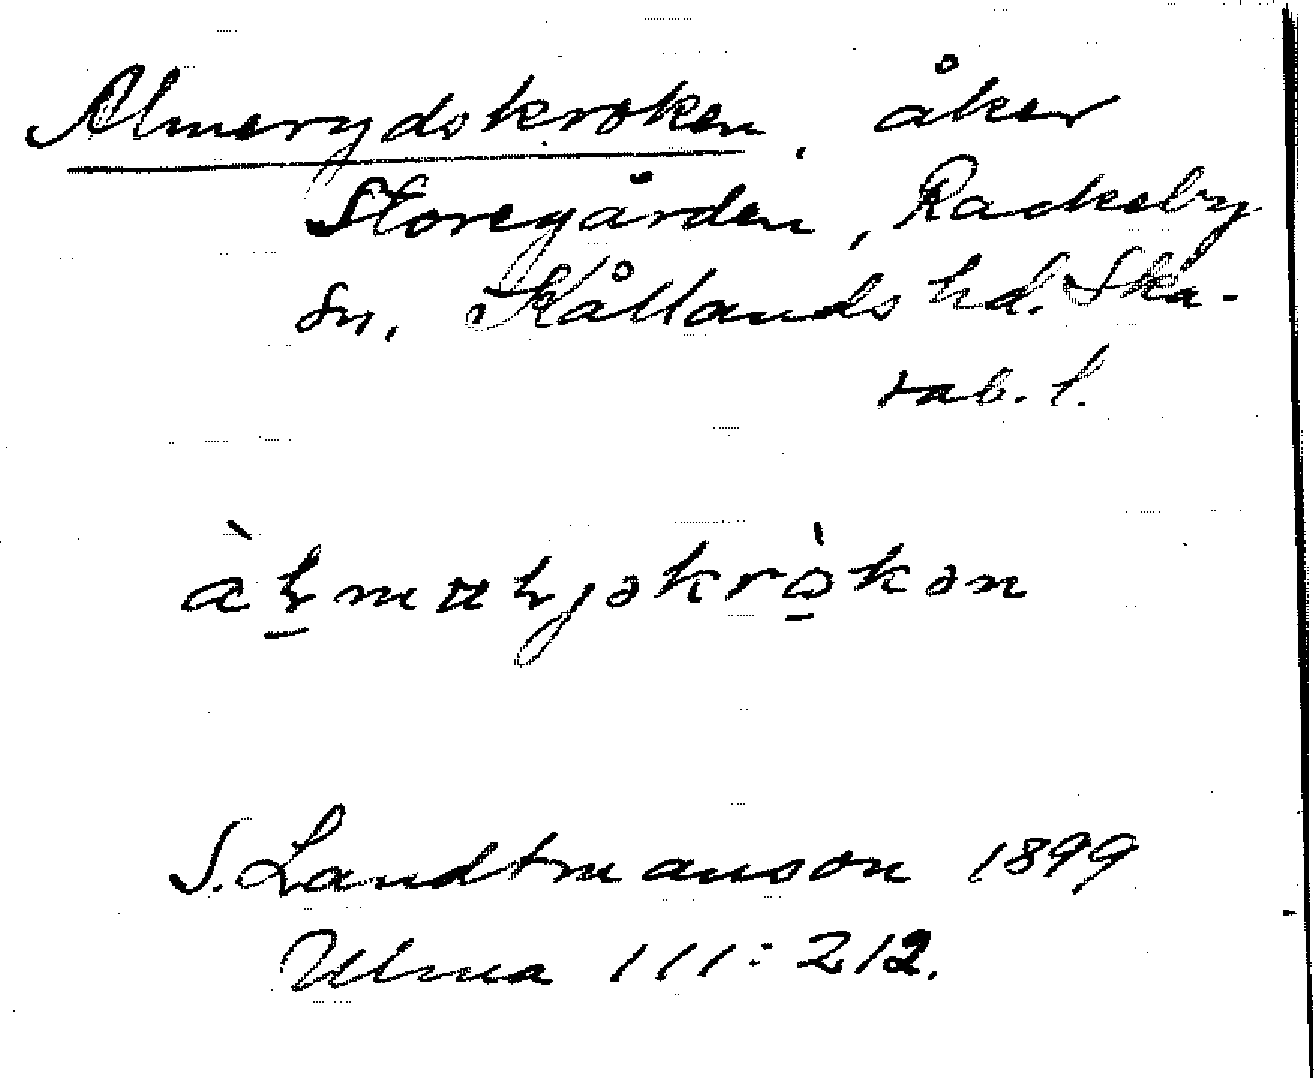 Almerydskroken, åker
Storegården, Rackeby
sn. Kållands hd. Ska-
rab. l.
S. Landtmanson 1899
Ulma 111:212.